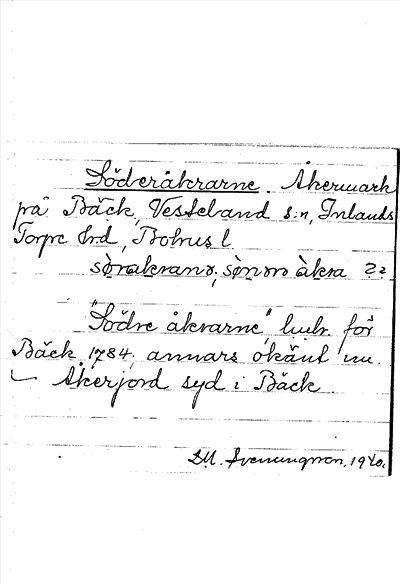 Söderåkrarne. Åkermark
på Bäck, Vesteland s:n, Inlands
Torpe hrd, Bohus l.
sørakrana, sønm åkra ??
"Södre åkrarne", lmtr. för
Bäck, 1784, annars okänt nu.
Åkerjord syd i Bäck.
D.M. Svenningsson, 1940.